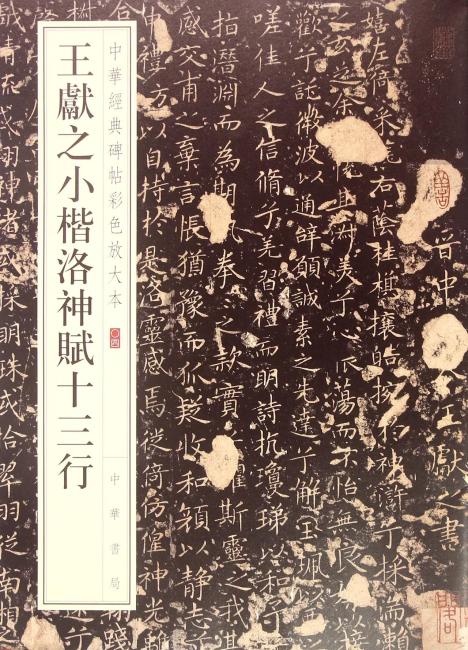 晉中 令王獻之書
嬉左倚采旄右蔭桂旗攘皓捥於神滸兮採湍瀨
之玄芝余 悅其淑美兮心 蕩而不怡無良 以接
歡兮託微波以通辭願誠素之先達兮解玉珮以
嗟佳人之信脩兮羌習禮而明詩抗瓊珶以和予
指潛淵而為期執拳 之款實 懼斯靈之我
感交甫之棄言悵猶豫而狐疑收和顏以靜志
申禮防以自持於是洛靈感焉徙倚傍偟神光離
中華經典碑帖彩色放大本 〇四
中華書局
王獻之小楷洛神賦十三行
清流或翔神渚或採明珠或拾翠羽從南湘